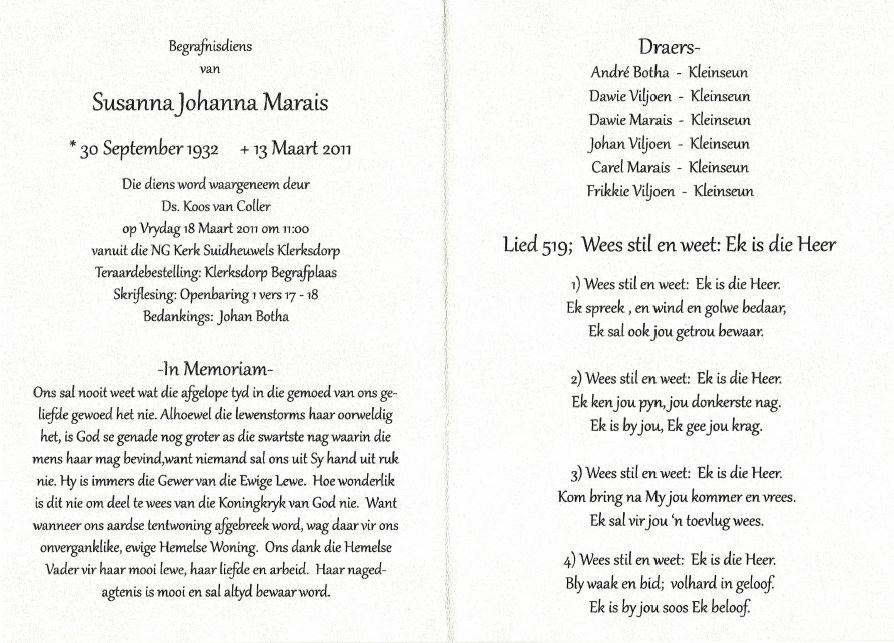 Begrafnisdiens
van
Susanna Johanna Marais
* 30 September 1932 + 13 Maart 2011
Die diens word waargeneem deur
Ds. Koos van Coller
op Vrydag 18 Maart 2011 om 11:00
vanuit die NG Kerk Suidheuwels Klerksdorp
Teraardebestelling: Klerksdorp Begrafplaas
Skriflesing: Openbaring 1 vers 17 - 18
Bedankings: Johan Botha
-In Memoriam-
Ons sal nooit weet wat die afgelope tyd in die gemoed van ons ge-
liefde gewoed het nie. Alhoewel die lewenstorms haar oorweldig
het, is God se genade nog groter as die swartste nag waarin die
mens haar mag bevind,want niemand sal ons uit Sy hand uit ruk
nie. Hy is immers die Gewer van die Ewige Lewe. Hoe wonderlik
is dit nie om deel te wees van die Koningkryk van God nie. Want
wanneer ons aardse tentwoning afgebreek word, wag daar vir ons
onverganklike, ewige Hemelse Woning. Ons dank die Hemelse
Vader vir haar mooi lewe, haar liefde en arbeid. Haar naged-
agtenis is mooi en sal altyd bewaar word.
Draers-
André Botha - Kleinseun
Dawie Viljoen - Kleinseun
Dawie Marais - Kleinseun
Johan Viljoen - Kleinseun
Carel Marais - Kleinseun
Frikkie Viljoen - Kleinseun
Lied 519; Wees stil en weet: Ek is die Heer
1) Wees stil en weet: Ek is die Heer.
Ek spreek , en wind en golwe bedaar,
Ek sal ook jou getrou bewaar.
2) Wees stil en weet: Ek is die Heer.
Ek ken jou pyn, jou donkerste nag.
Ek is by jou, Ek gee jou krag.
3) Wees stil en weet: Ek is die Heer.
Kom bring na My jou kommer en vrees.
Ek sal vir jou ‘n toevlug wees.
4) Wees stil en weet: Ek is die Heer.
Bly waak en bid; volhard in geloof.
Ek is by jou soos Ek beloof.